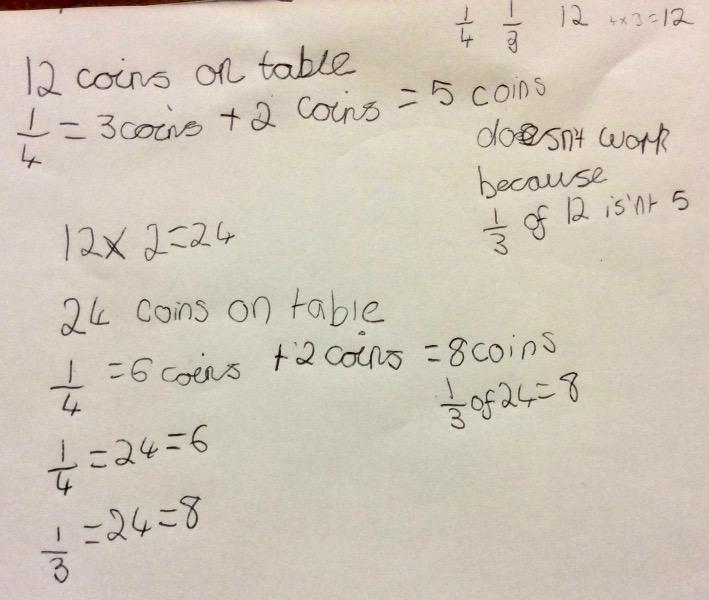 1/4 1/3 12 4x3=12
12 coins on table
1/4 = 3coins + 2 coins = 5 coins
doesn't work
because
1/3 of 12 is'nt 5
12x 2=24
24 coins on table
1/4 =6 coins +2 coins =8coins
1/3 of 24=8
1/4 =24=6
1/3 =24=8